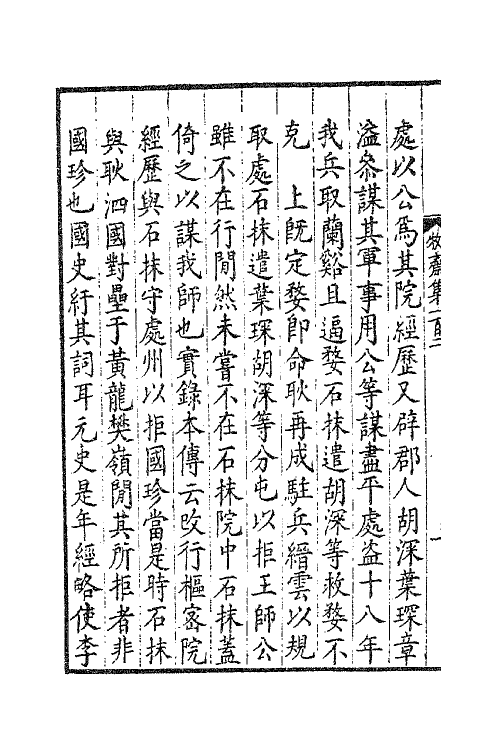 牧齋集一百二
處以公爲其院經歷又辟郡人胡深葉琛章
溢叅謀其軍事用公等謀盡平處盗十八年
我兵取蘭谿且逼婺石抹遣胡深等救婺不
克　上旣定婺卽命耿再成駐兵縉雲以規
取處石抹遣葉琛胡深等分屯以拒王師公
雖不在行閒然未嘗不在石抹院中石抹蓋
倚之以謀我師也實錄本傳云改行樞密院
經歷與石抹守處州以拒國珍當是時石抹
與耿泗國對壘于黃龍樊嶺閒其所拒者非
國珍也國史紆其詞耳元史是年經略使李